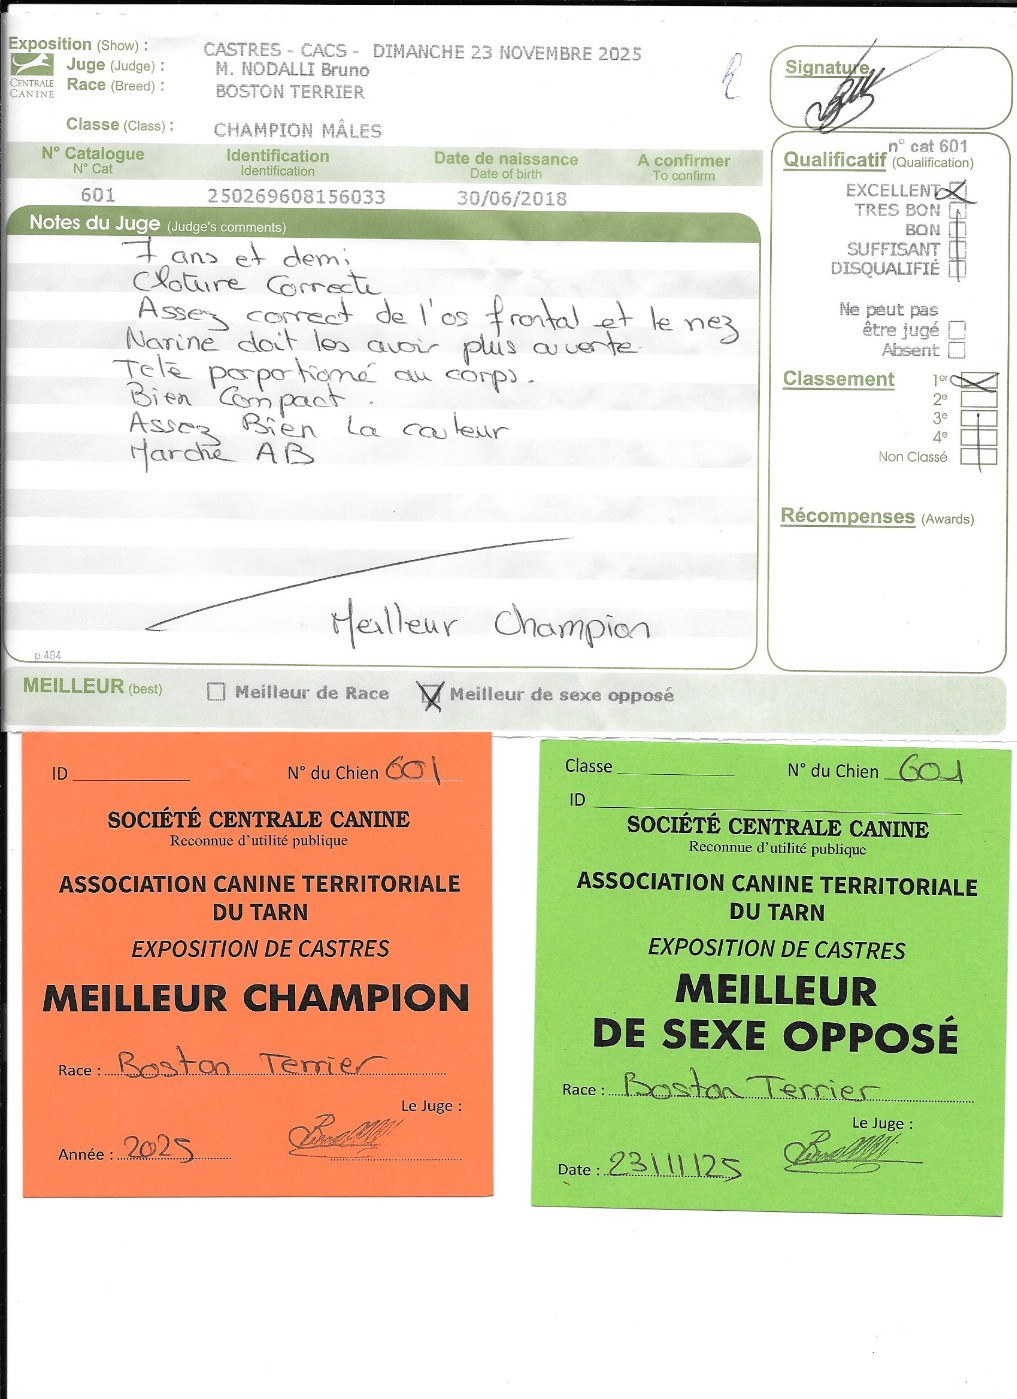 Exposition (Show) : CASTRES - CACS - DIMANCHE 23 NOVEMBRE 2025
Juge (Judge) : M. NODALLI Bruno
Race (Breed) : BOSTON TERRIER
CENTRALE CANINE
Classe (Class) : CHAMPION MÂLES
R
Signature
N° Catalogue Identification Date de naissance A confirmer
N° Cat Identification Date of birth To confirm
601 250269608156033 30/06/2018
n° cat 601
Qualificatif (Qualification)
EXCELLENT
TRES BON
BON
SUFFISANT
DISQUALIFIÉ
Ne peut pas
être jugé
Absent
Classement 1er
2e
3e
4e
Non Classé
Récompenses (Awards)
Notes du Juge (Judge's comments)
7 ans et demi
Cloture Correcte
Assez correct de l'os frontal et le nez
Narine doit les avoir plus ouverte
Tetê porportionné au corps.
Bien Compact.
Assez Bien La couleur
Marche AB
Meilleur Champion
µ.464
MEILLEUR (best) Meilleur de Race Meilleur de sexe opposé
ID N° du Chien 601
SOCIÉTÉ CENTRALE CANINE
Reconnue d'utilité publique
ASSOCIATION CANINE TERRITORIALE
DU TARN
EXPOSITION DE CASTRES
MEILLEUR CHAMPION
Race : Boston Terrier
Le Juge :
Année : 2025
Classe N° du Chien 601
ID
SOCIÉTÉ CENTRALE CANINE
Reconnue d'utilité publique
ASSOCIATION CANINE TERRITORIALE
DU TARN
EXPOSITION DE CASTRES
MEILLEUR
DE SEXE OPPOSÉ
Race : Boston Terrier
Le Juge :
Date : 23/11/25